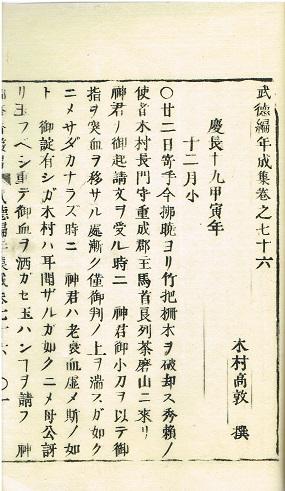 武德編年成集卷之七十六
木村高敦 撰
慶長十九甲寅年
十二月小
〇廿二日寄手今拂曉ヨリ竹把柵木ヲ破却ス秀賴ノ
使者木村長門守重成郡主馬首良列茶磨山ニ來リ
神君ノ御起請文ヲ受ル時ニ 神君御小刀ヲ以テ御
指ヲ突血ヲ移サル處漸ク僅御判ノ上ヲ濡スガ如ク
ニメサダカナラズ時ニ 神君ハ老衰血虛メ斯ノ如
ト 御諚有シガ木村ハ耳聞ザルガ如クニメ母公訝
リ玉フベシ重テ御血ヲ洒ガセ玉ハンヿヲ請フ 神